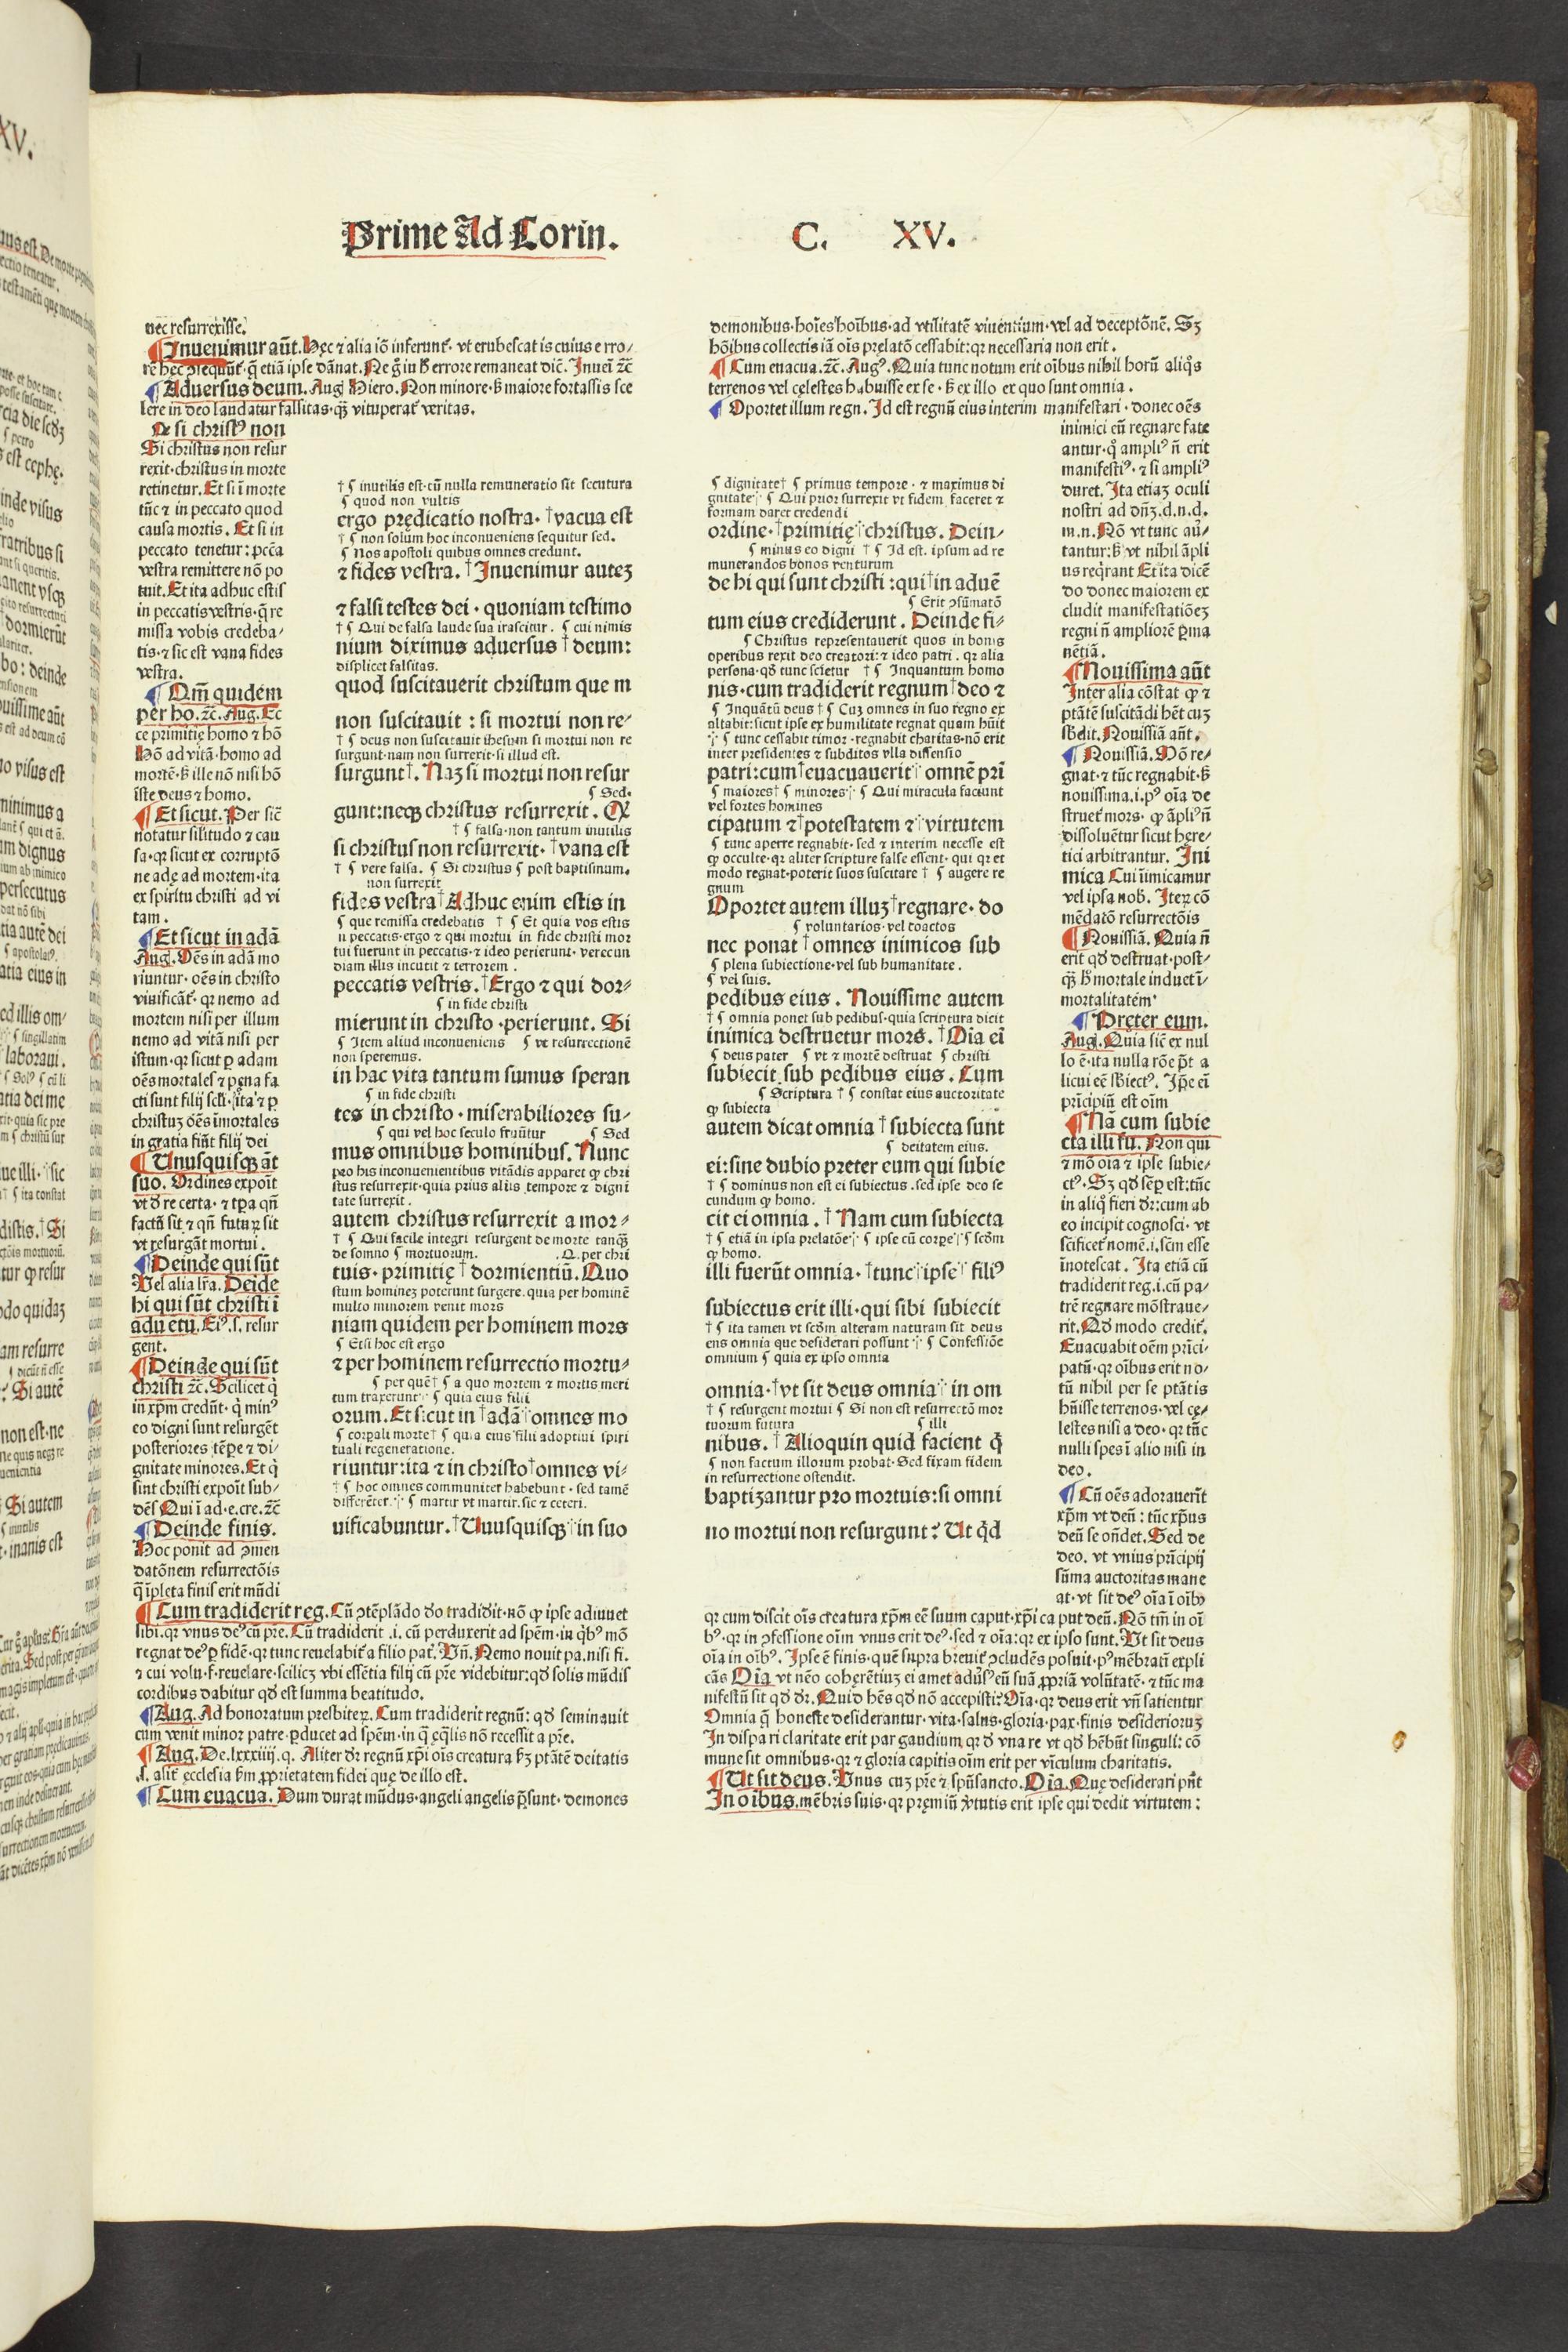 Prime Ad Corin. C. XV.
nec resurrexisse.
¶Inuenimur aūt. Hęc ⁊ alia iō inferunt᷑. vt erubescat is cuius erro/
Aduersus deum. Aug. Hiero. Non minore. maiore fortassis sce
lere in deo laudatur falsitas. vituperat᷑ veritas.
Ne si christꝰ non
Si christus non resur
rexit·christus in morte
retinetur. Et si ī morte
tūc ⁊ in peccato quod
causa mortis. Et si in
peccato tenetur: pctā
vestra remittere nō po
tuit. Et ita adhuc estis
in peccatis vestris· re
missa vobis credeba/
tis·⁊ sic est vana fides
vestra.
¶Qm̄ quidem
per ho. ⁊c̄. Aug. Ec
ce primitię homo ⁊ hō
Hō ad vitā·homo ad
mortē· ille nō nisi hō
iste deus ⁊ homo.
¶Et sicut. Per sic̄
notatur silitudo ⁊ cau
sa·qꝛ sicut ex corruptō
ne adę ad mortem·ita
ex spiritu christi ad vi
tam.
¶Et sicut in adā
Aug. Oēs in adā mo
riuntur·oēs in christo
viuificāt᷑·qꝛ nemo ad
mortem nisi per illum
nemo ad vitā nisi per
istum·qꝛ sicut ꝑ adam
oēs mortales ⁊ pęna fa
cti sunt filij ita ⁊ ꝑ
christuꝫ oēs īmortales
in gratia fiūt filij dei
¶Unusquisqꝫ āt
suo. Ordines expoīt
factū sit ⁊ qn̄ futuꝝ sit
vt resurgāt mortui.
¶Deinde qui sūt
Vel alia lr̄a. Deide
hi qui sūt christi ī
aduētu. Eiꝰ.s. resur
gent.
¶Deinde qui sūt
christi ⁊c̄. Scilicet q̇
in xp̄m credūt·q̇ minꝰ
eo digni sunt resurgēt
posteriores tēꝑe ⁊ di/
gnitate minores. Et q̇
sint christi expoīt sub/
dēs Qui ī ad.e.cre.⁊c̄
¶Deinde finis.
Hoc ponit ad ꝯmen
datōnem resurrectōis
q̄ īpleta finis erit mūdi
† ¶ inutilis est·cū nulla remuneratio sit secutura
¶ quod non vultis
ergo prędicatio nostra· †vacua est
† ¶ non solum hoc inconueniens sequitur sed.
¶ Nos apostoli quibus omnes credunt.
⁊ fides vestra. †Inuenimur auteꝫ
⁊ falsi testes dei · quoniam testimo
† ¶ Qui de falsa laude sua irascitur. ¶ cui nimis
nium diximus aduersus †deum:
displicet falsitas.
quod suscitauerit christum que m
non suscitauit : si mortui non re/
† ¶ deus non suscitauit ihesum si mortui non re
surgunt·nam non surrexit·si illud est.
surgunt†. Naꝫ si mortui non resur
¶ Sed.
gunt:neqꝫ christus resurrexit. Qꝫ
† ¶ falsa·non tantum inutilis
si christus non resurrexit· †vana est
† ¶ vere falsa. ¶ Si christus ¶ post baptisinum.
non surrexit
fides vestra†Adhuc enim estis in
¶ que remissa credebatis † ¶ Et quia vos estis
n peccatis·ergo ⁊ qui mortui in fide christi mor
tui fuerunt in peccatis·⁊ ideo perierunt· verecun
diam illis incutit ⁊ terrorem.
peccatis vestris. †Ergo ⁊ qui dor/
¶ in fide christi
mierunt in christo ·perierunt. Si
¶ Item aliud inconueniens ¶ vt resurrectionē
non speremus.
in hac vita tantum sumus speran
¶ in fide christi
tes in christo · miserabiliores su/
¶ qui vel hoc seculo fruūtur ¶ Sed
mus omnibus hominibus. Nunc
pro his inconuenientibus vitādis apparet ꝙ chri
stus resurrexit·quia prius aliis tempore ⁊ digni
tate surrexit.
autem christus resurrexit a mor/
† ¶ Qui facile integri resurgent de morte tanqꝫ
de somno ¶ mortuorum. .Q. per chri
tuis· primitię †dormientiū. Quo
stum homineꝫ poterunt surgere. quia per hominē
multo minorem venit mors
niam quidem per hominem mors
¶ Etsi hoc est ergo
⁊ per hominem resurrectio mortu/
¶ per quē† ¶ a quo mortem ⁊ mortis meri
tum traxerunt ¶ quia eius filii
orum. Et sicut in †adā omnes mo
¶ corꝑali morte† ¶ quia eius filii adoptiui spiri
tuali regeneratione.
riuntur:ita ⁊ in christo†omnes vi/
† ¶ hoc omnes communiter habebunt · sed tamē
differēter. ¶ martir vt martir. sic ⁊ ceteri.
uificabuntur. †Unusquisqꝫ in suo
¶Cum tradiderit reg. Cū ꝯtēplādo tradidit·nō ꝙ ipse adiuuet
regnat deꝰ ꝑ fidē·qꝛ tunc reuelabit᷑ a filio pat᷑. Un̄. Nemo nouit pa.nisi fi.
⁊ cui volu.f.reuelare·scilicꝫ vbi essētia filij cū pr̄e videbitur:qd̄ solis mūdis
cordibus dabitur qd̄ est summa beatitudo.
¶Aug. Ad honoratum presbiteꝝ. Cum tradiderit regnū: qd̄ seminauit
cum venit minor patre·ꝑducet ad spēm·in q̄ ęq̄lis nō recessit a pr̄e.
¶Aug. De.lxxxiiij.q. Aliter dr̄ regnū xp̄i oīs creatura ptātē deitatis
.s. alit᷑ ęcclesia ꝓprietatem fidei quę de illo est.
¶Cum euacua. Dum durat mūdus·angeli angelis p̄sunt· demones
demonibus·hoīes hoībus·ad vtilitatē viuentium·vel ad deceptōnē. Sꝫ
hōibus collectis iā oīs pręlatō cessabit:qꝛ necessaria non erit.
¶Cum enacua.⁊c̄. Augꝰ. Quia tunc notum erit oībus nihil horū aliq̇s
terrenos vel cęlestes habuisse ex se · ex illo ex quo sunt omnia.
¶Oportet illum regn. Id est regnū eius interim manifestari·donec oēs
¶ dignitate† ¶ primus tempore · ⁊ maximus di
gnitate ¶ Qui prior surrexit vt fidem faceret ⁊
formam daret credendi
ordine· †primitię christus. Dein/
¶ minus eo digni † ¶ Id est. ipsum ad re
munerandos bonos venturum
de hi qui sunt christi :qui†in aduē
¶ Erit ꝯsūmatō
tum eius crediderunt. Deinde fi/
¶ Christus representauerit quos in bonis
operibus rexit deo creatori:⁊ ideo patri. qꝛ alia
persona·qd̄ tunc scietur † ¶ Inquantum homo
nis·cum tradiderit regnum†deo ⁊
¶ Inquātū deus † ¶ Cuꝫ omnes in suo regno ex
altabit:sicut ipse ex humilitate regnat quam hūit
¶ tunc cessabit timor·regnabit charitas·nō erit
inter presidentes ⁊ subditos vlla dissensio
patri:cum†euacuauerit omnē pri
¶ maiores† ¶ minores ¶ Qui miracula faciunt
vel fortes homines
cipatum ⁊†potestatem ⁊ virtutem
¶ tunc aperte regnabit·sed ⁊ interim necesse est
ꝙ occulte·qꝛ aliter scripture false essent·qui qꝛ et
modo regnat·poterit suos suscitare † ¶ augere re
gnum
Oportet autem illuꝫ†regnare·do
¶ voluntarios·vel coactos
nec ponat †omnes inimicos sub
¶ plena subiectione·vel sub humanitate.
¶ vel suis.
pedibus eius. Nouissime autem
† ¶ omnia ponet sub pedibus·quia scriptura dicit
inimica destruetur mors. †Oīa ei
¶ deus pater ¶ vt ⁊ mortē destruat ¶ christi
subiecit sub pedibus eius. Cum
¶ Scriptura † ¶ constat eius auctoritate
ꝙ subiecta
autem dicat omnia †subiecta sunt
¶ deitatem eius.
ei:sine dubio preter eum qui subie
† ¶ dominus non est ei subiectus·sed ipse deo se
cundum ꝙ homo.
cit ei omnia. †Nam cum subiecta
† ¶ etiā in ipsa prelatōe ¶ ipse cū corꝑe ¶ scd̄m
ꝙ homo.
illi fuerūt omnia· †tunc ipse filiꝰ
subiectus erit illi·qui sibi subiecit
† ¶ ita tamen vt scd̄m alteram naturam sit deus
ens omnia que desiderari possunt ¶ Confessiōe
omnium ¶ quia ex ipso omnia
omnia·†vt sit deus omnia in om
† ¶ resurgent mortui ¶ Si non est resurrectō mor
tuorum futura ¶ illi
nibus. †Alioquin quid facient q̇
¶ non factum illorum probat·Sed fixam fidem
in resurrectione ostendit.
baptizantur pro mortuis:si omni
no mortui non resurgunt? Ut qd̄
inimici eū regnare fate
antur·q̊ ampliꝰ n̄ erit
manifestiꝰ·⁊ si ampliꝰ
duret. Ita etiaꝫ oculi
nostri ad dn̄ꝫ.d.n.d.
m.n. Nō vt tunc au/
tantur: vt nihil āpli
us req̇rant Et ita dicē
do donec maiorem ex
cludit manifestatiōeꝫ
regni n̄ ampliorē ꝑma
nētiā.
¶Nouissima aūt
Inter alia cōstat ꝙ ⁊
ptātē suscitādi hēt cuꝫ
Nouissiā aūt.
¶Nouissiā. Mō re/
gnat·⁊ tūc regnabit·
nouissima.i.pꝰ oīa de
struet᷑ mors· ꝙ āpliꝰ n̄
dissoluētur sicut hęre/
tici arbitrantur. Ini
mica Cui inimicamur
vel ipsa nob. Iteꝝ cō
mēdatō resurrectōis
¶Nouissiā. Quia n̄
erit qd̄ destruat·post/
mortale inducti
mortalitatem·
¶Preter eum.
Aug. Quia sic̄ ex nul
lo ē·ita nulla rōe p̄t a
licui eē Ip̄e eī
prīcipiū est oīm
¶Nā cum subie
cta illi fu. Non qui
⁊ mō oīa ⁊ ipse subie/
ctꝰ·Sꝫ qd̄ sēꝑ est:tūc
in aliq̊ fieri dr̄:cum ab
eo incipit cognosci·vt
scīficet᷑ nomē.i.scīm esse
īnotescat. Ita etiā cū
tradiderit reg.i.cū pa/
trē regnare mōstraue/
rit. Qd̄ modo credit᷑.
Euacuabit oēm prīci/
patū·qꝛ oībus erit no/
tū nihil per se ptātis
hūisse terrenos·vel cę/
lestes nisi a deo·qꝛ tūc
nulli spes ī alio nisi in
deo.
¶Cū oēs adorauerīt
xp̄m vt deū : tūc xp̄us
deū se ondet. Sed de
deo. vt vnius prīcipij
sūma auctoritas mane
at·vt sit deꝰ oīa ī oībꝫ
qꝛ cum discit oīs creatura xp̄m eē suum caput·xp̄i ca put deū. Nō tm̄ in oī
bꝰ·qꝛ in ꝯfessione oīm vnus erit deꝰ·sed ⁊ oīa:qꝛ ex ipso sunt. Ut sit deus
oīa in oībꝰ. Ipse ē finis·quē supra breuit᷑ ꝯcludēs posuit·pꝰ mēbratī expli
nifestū sit qd̄ dr̄. Quid hēs qd̄ nō accepisti? Oīa·qꝛ deus erit vn̄ satientur
Omnia q̄ honeste desiderantur·vita·salus·gloria·pax·finis desiderioruꝫ
In dispari claritate erit par gaudium·qꝛ qd̄ vna re vt qd̄ hēbūt singuli: cō
mune sit omnibus·qꝛ ⁊ gloria capitis oīm erit per vīculum charitatis.
¶Ut sit deus. Unus cuꝫ pr̄e ⁊ spūsancto. Oīa. Quę desiderari pn̄t
In oibus. mēbris suis·qꝛ pręmiū v̓tutis erit ipse qui dedit virtutem: